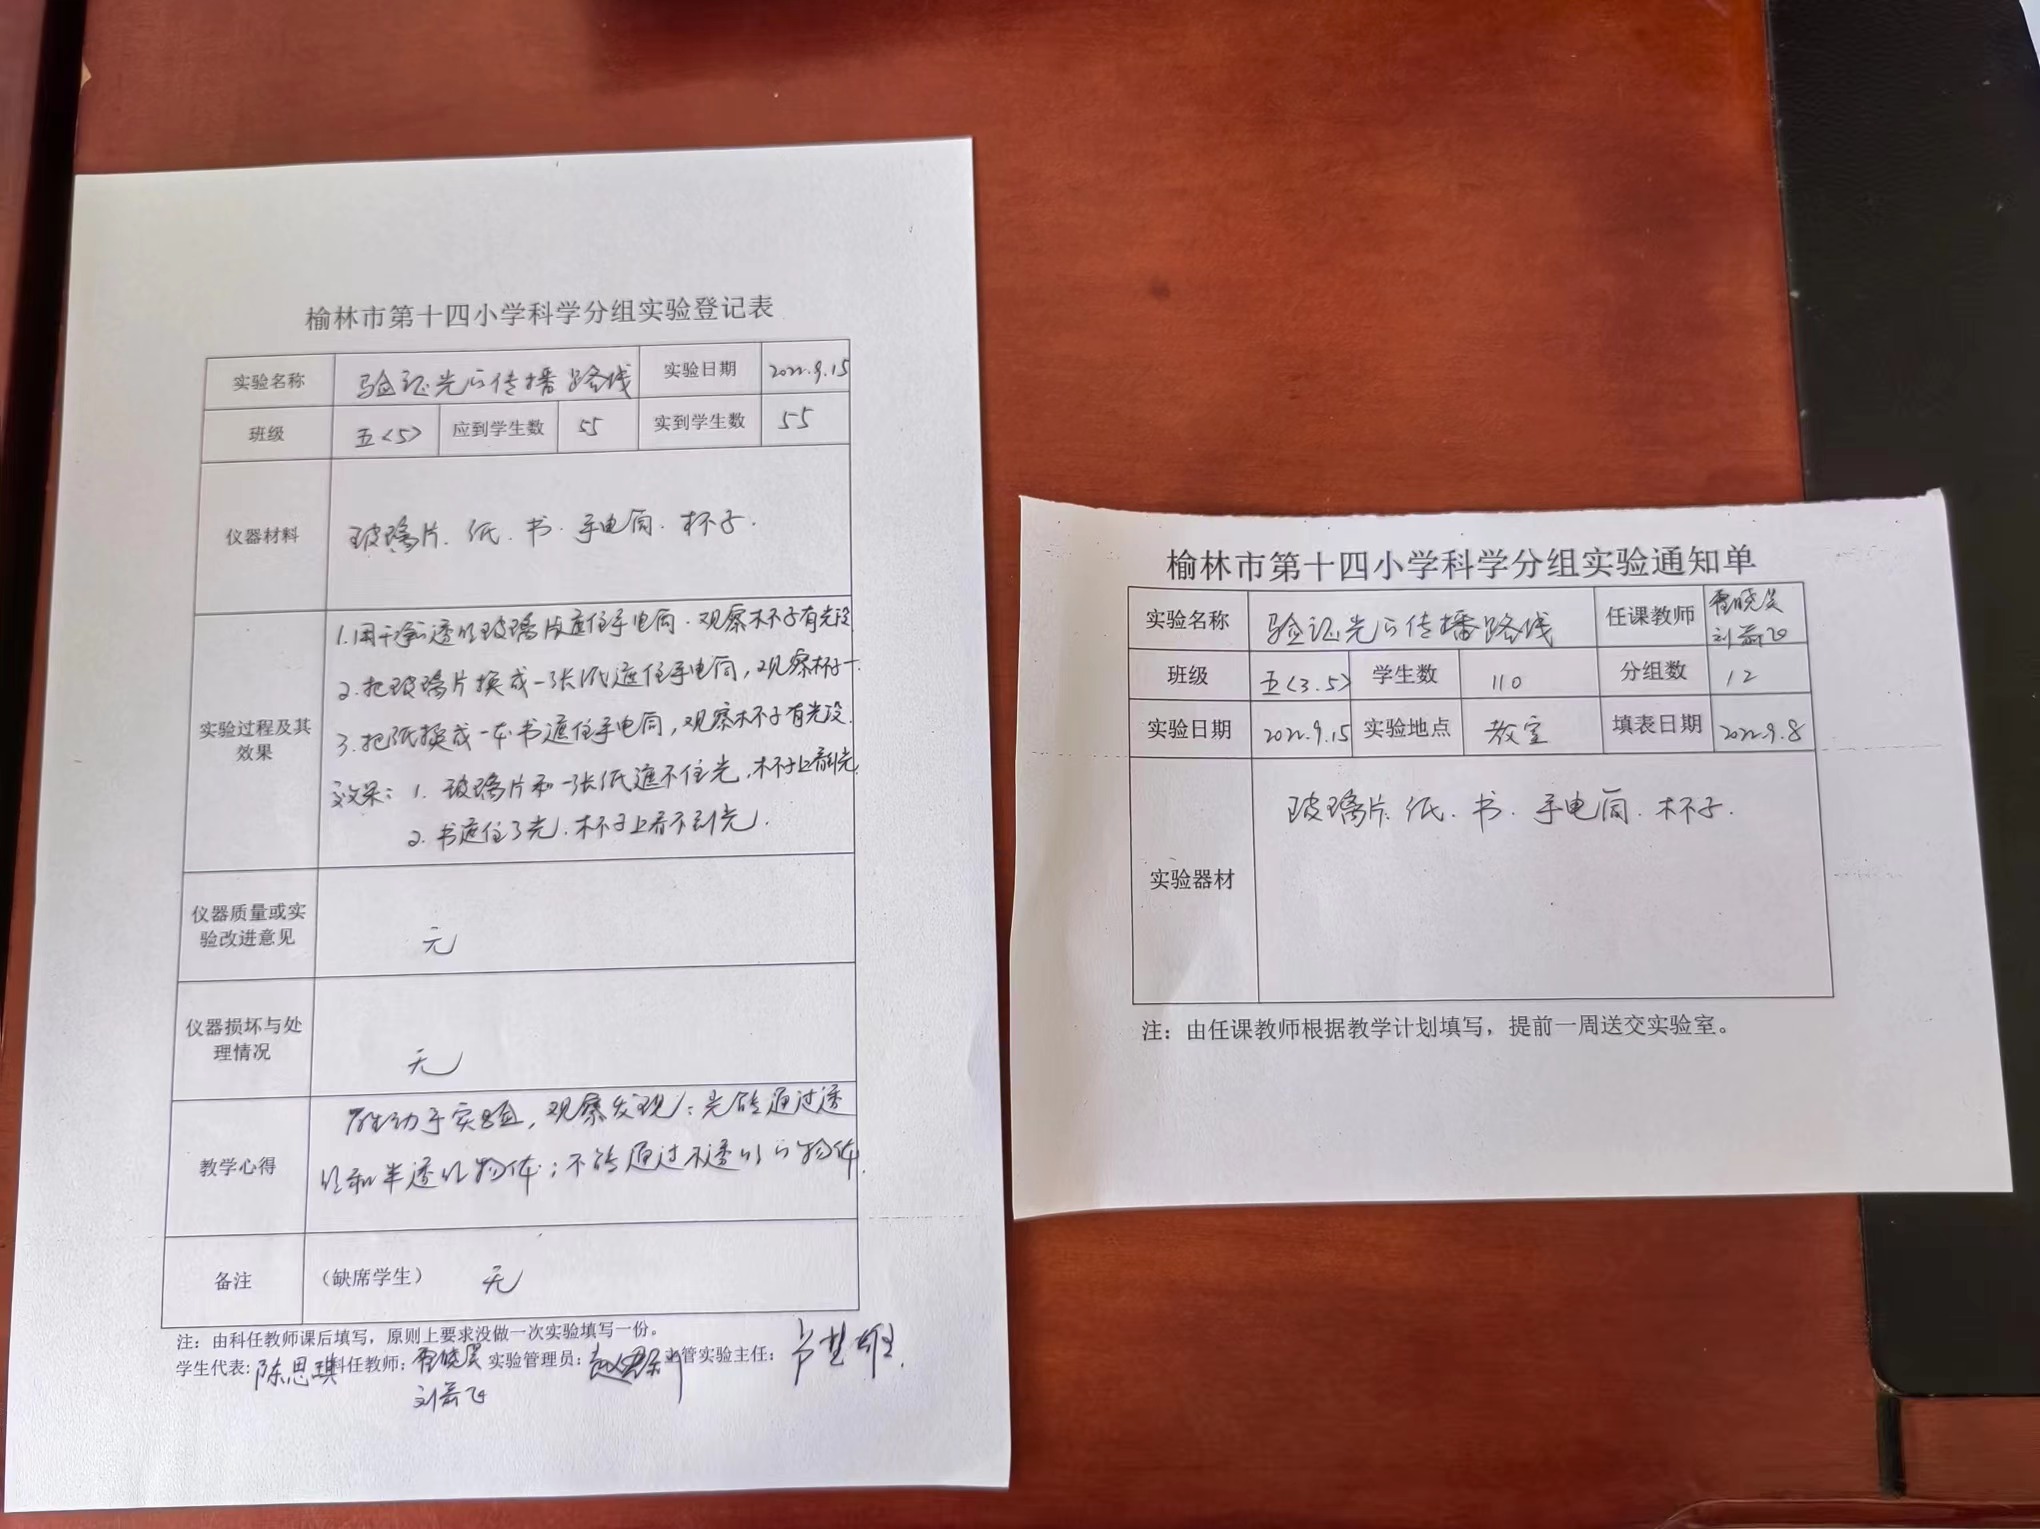 榆林市第十四小学科学分组实验登记表
实验名称 验证光的传播路线 实验日期 2022.9.15
班级 五<5> 应到学生数 55 实到学生数 55
仪器材料 玻璃片、纸、书、手电筒、杯子.
实验过程及其效果
1.用干净透明玻璃片遮住手电筒.观察杯子有光没
2.把玻璃片换成一张纸遮住手电筒,观察杯子
3.把纸换成一本书遮住手电筒,观察杯子有光没.
效果:1.玻璃片和一张纸遮不住光,杯子上看到光
2.书遮住了光.杯子上看不到光.
仪器质量或实验改进意见 无
仪器损坏与处理情况 无
教学心得
动手实验,观察发现:光能通过透
明和半透明物体;不能通过不透明的物体.
备注 (缺席学生) 无
注:由科任教师课后填写,原则上要求没做一次实验填写一份。
学生代表:陈思琪 科任教师: 实验管理员: 主管实验主任:
榆林市第十四小学科学分组实验通知单
实验名称 验证光的传播路线 任课教师
班级 五<3.5> 学生数 110 分组数 12
实验日期 2022.9.15 实验地点 教室 填表日期 2022.9.8
实验器材 玻璃片.纸.书.手电筒.杯子.
注:由任课教师根据教学计划填写,提前一周送交实验室。